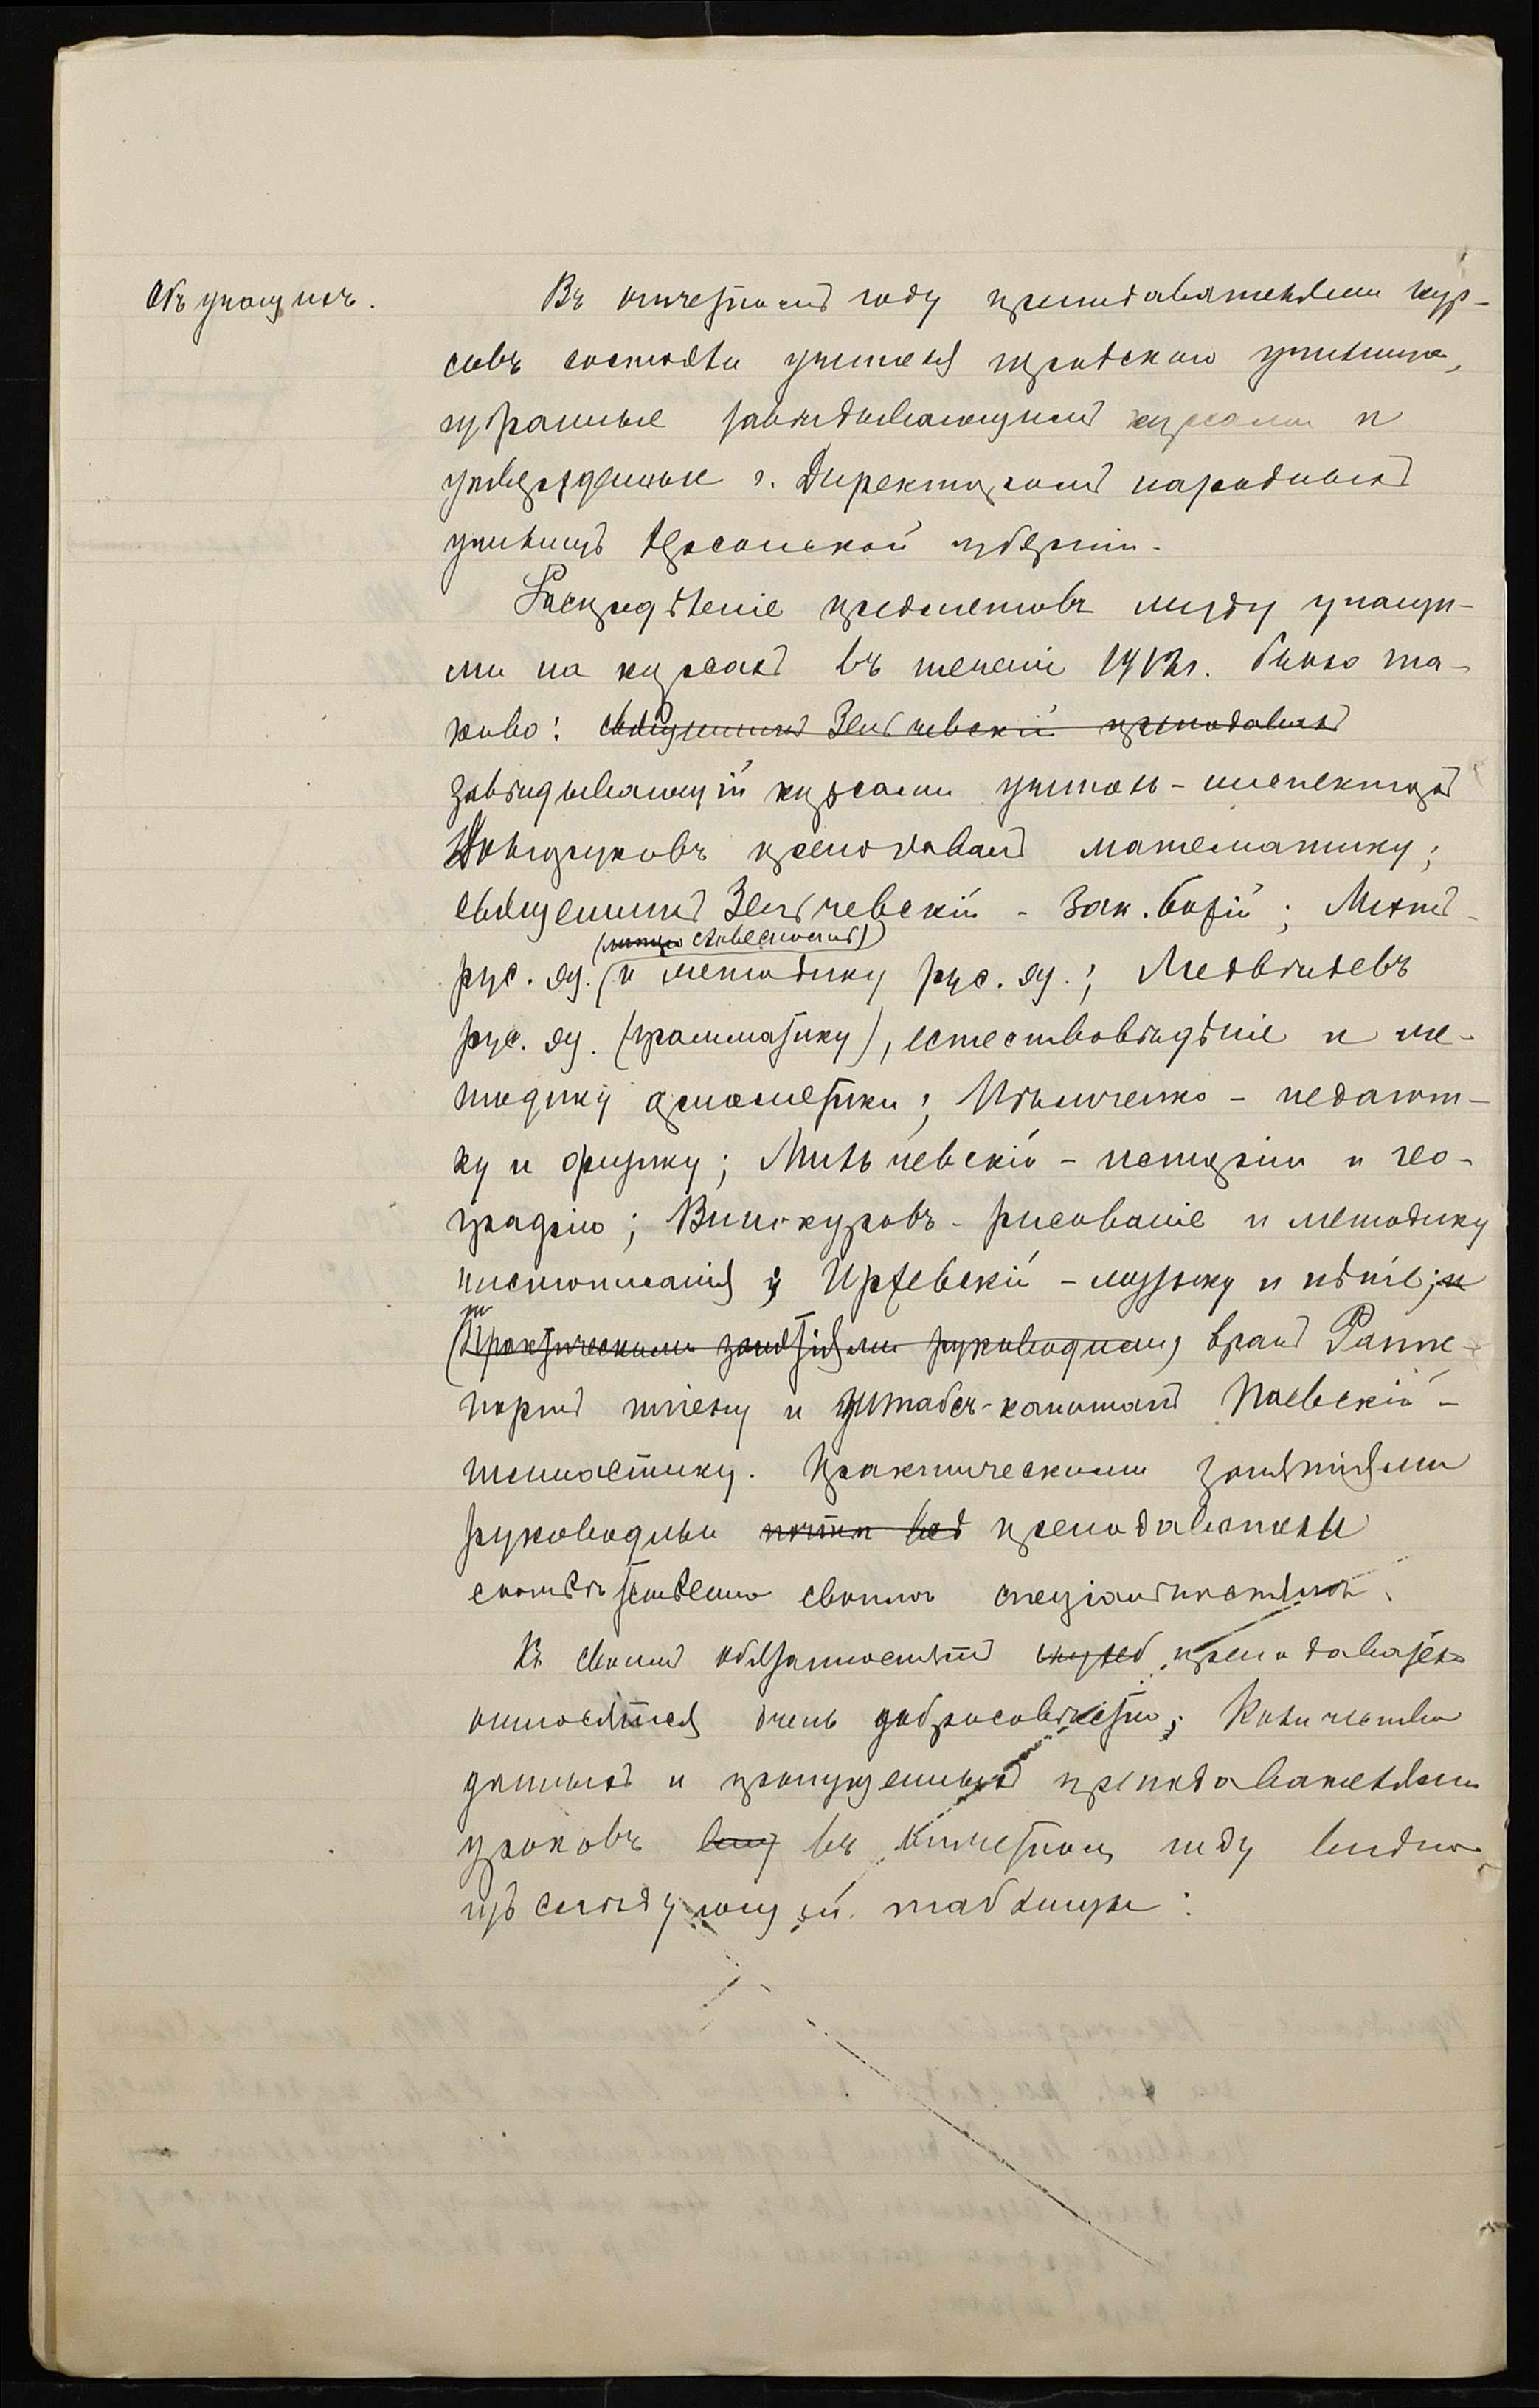 Объ учащихъ.
Въ отчетномъ году преподавателями кур-
совъ состояли учителя городского училища,
избранные завѣдывающимъ курсами и
утвержденные г. Директоромъ народныхъ
училищъ Херсонской губерніи.
Распредѣленіе предметовъ между учащи-
ми на курсахъ въ теченіе 1912г. было та-
ково: священникъ Зенѣчевскій преподавалъ
завѣдывающій курсами учитель-инспекторъ
преподавалъ математику;
священникъ Зенѣчевскій - Зак. Божій;
(словесность)
рус. яз. и методику рус. яз.; Медвѣдевъ
рус. яз. (грамматику), естествовѣдѣніе и ме-
тодику ариѳметики; Ильиченко - педагоги-
ку и физику; Мильчевскій - исторію и гео-
графію; Винокуровъ - рисованіе и методику
чистописанія; Иржевскій - музыку и пѣніе; и
(практическими занятіями руководили) врачъ Раппо-
портъ гигіену и Штабсъ-капитанъ Паевскій -
гимнастику. Практическими занятіями
руководили почти всѣ преподаватели
соотвѣтственно своимъ спеціальностямъ.
Къ своимъ обязанностямъ преподаватели
относятся очень добросовѣстно; Количество
данныхъ и пропущенныхъ преподавателями
уроковъ въ отчетномъ году видно
изъ слѣдующей таблицы: